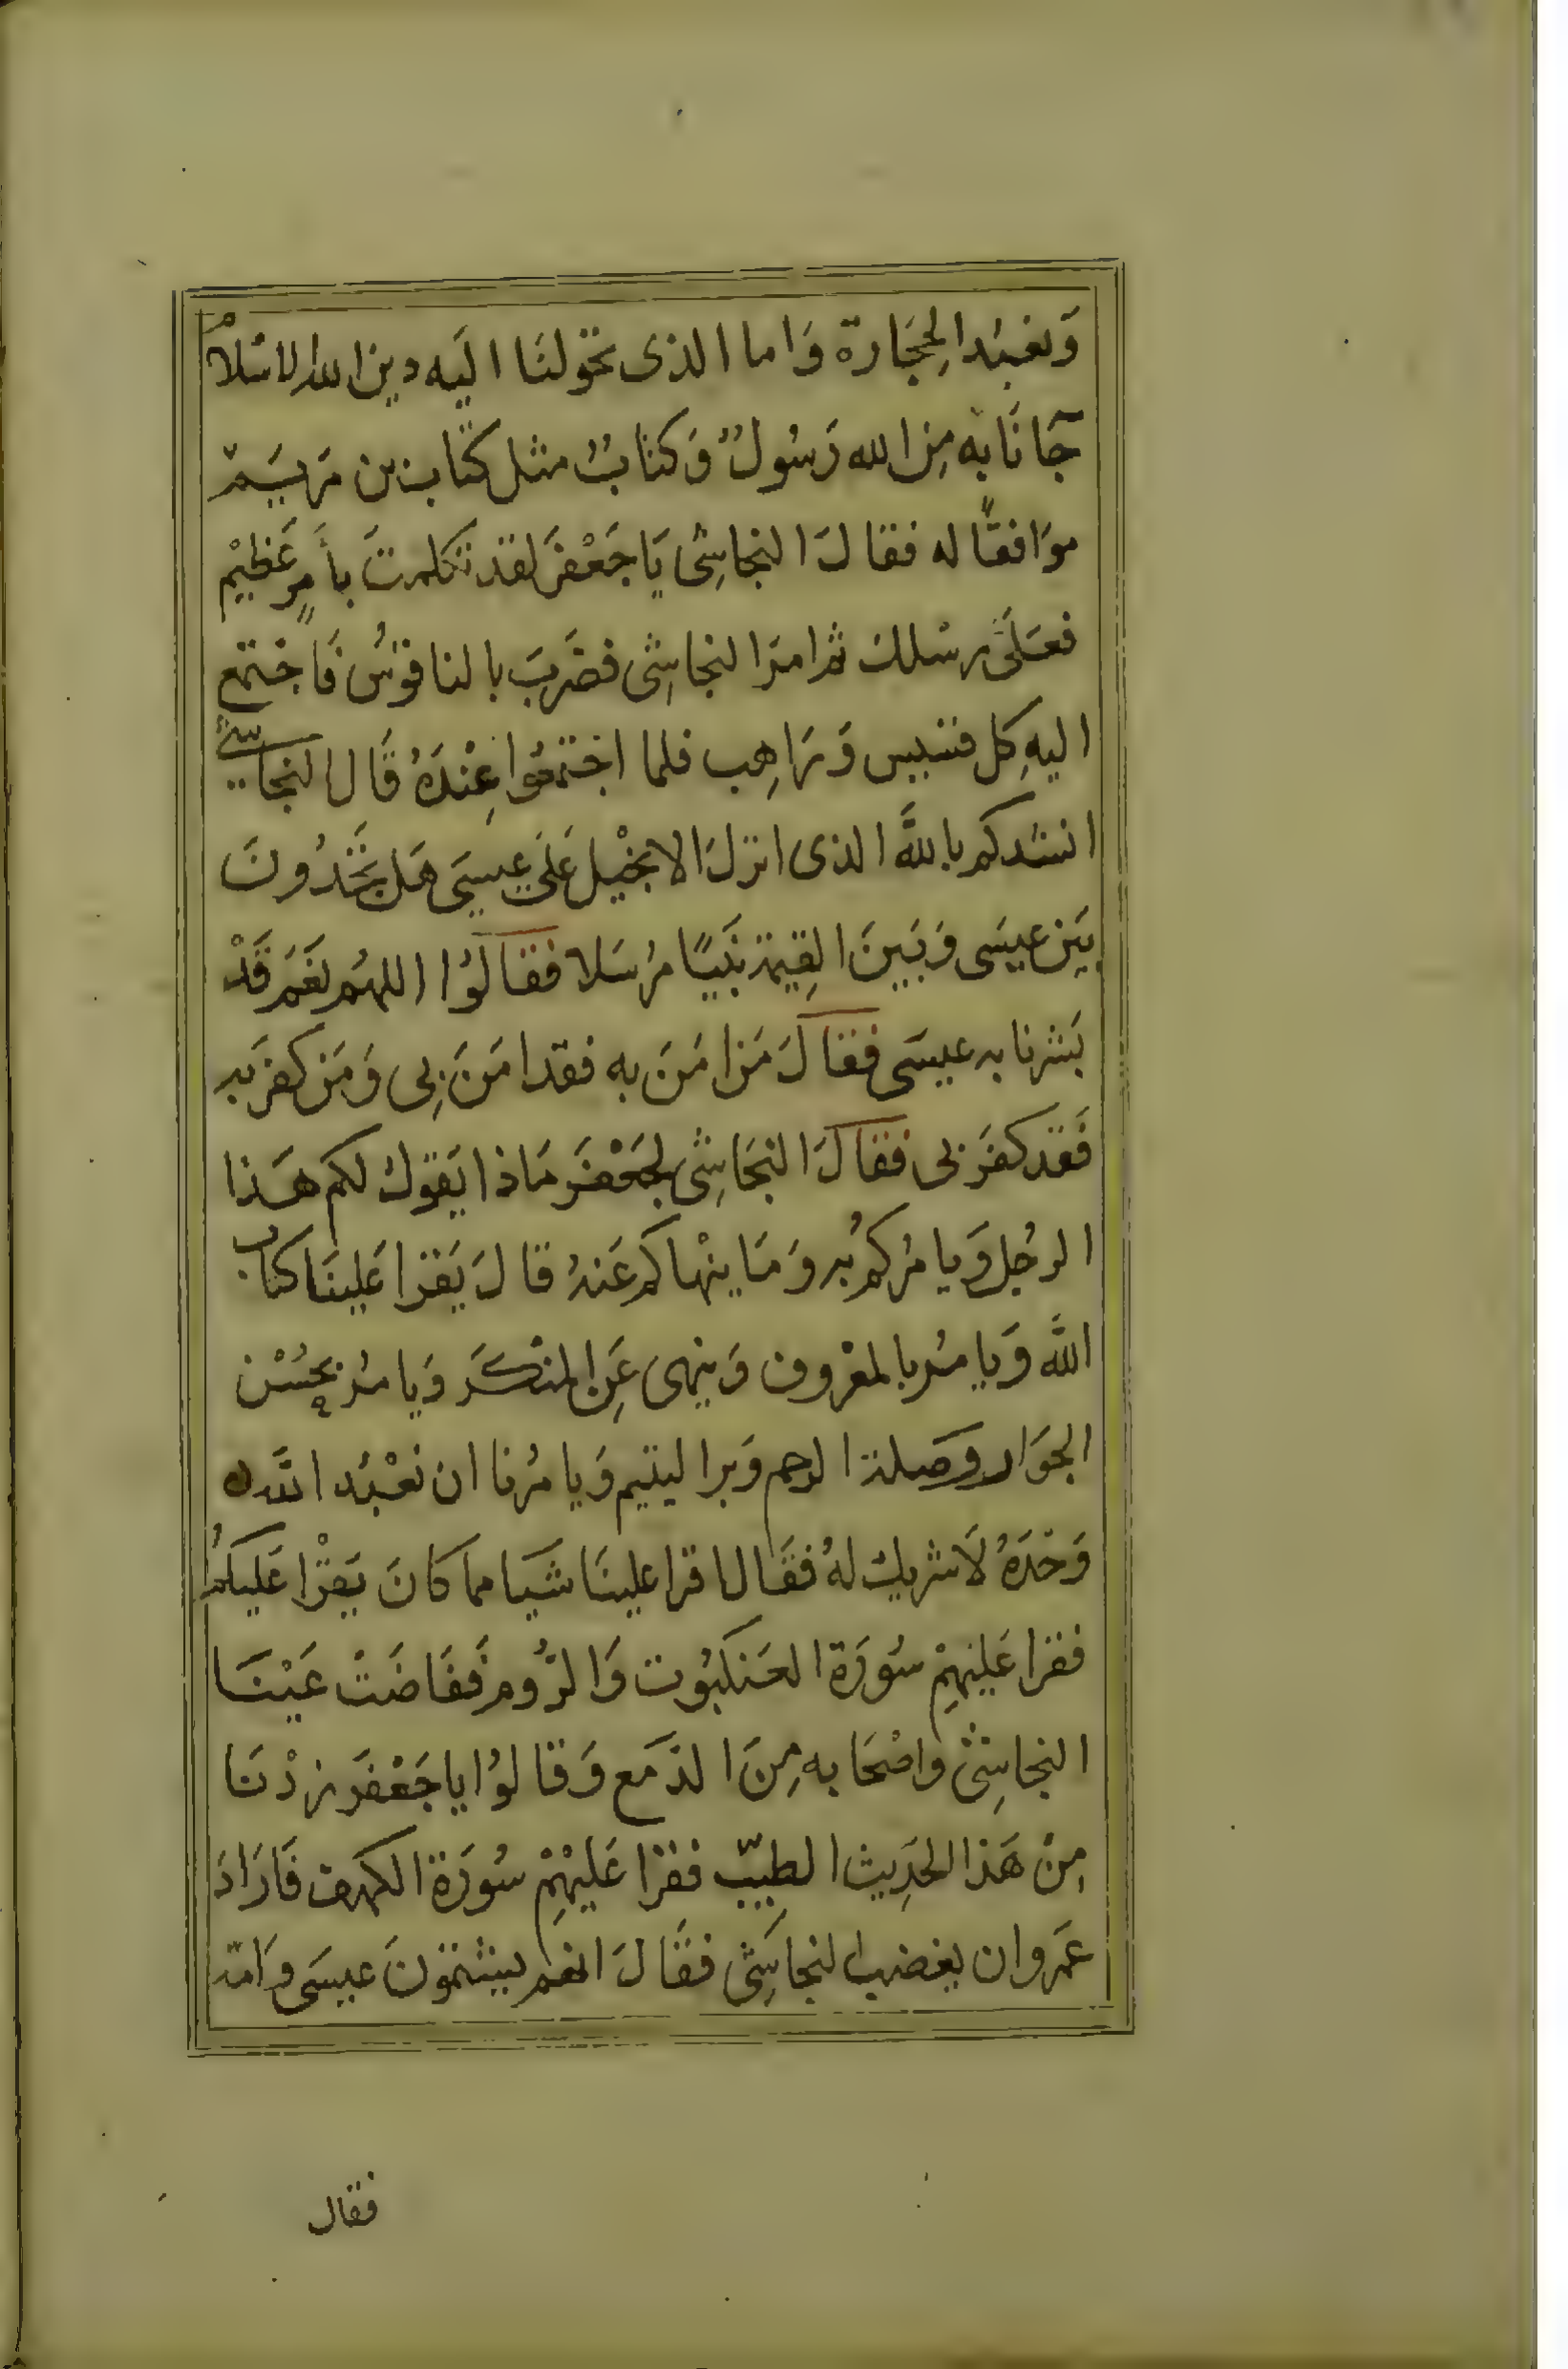 وَنعبُد الحِجَارة وَاما الذى تحولنَا اليَه دين الله الاسْلامُ
جَآنَا بِه مِن الله رَسُولٌ وَكتابٌ مثل كتاب بن مَريَم
موَافقًا له فقالَ النجاشِى يَا جَعْفَر لقد تكلمتَ بأمرٍ عَظيْم
فعَلَى رسْلك ثم امرَ النجاشِى فضَربَ بالناقوسُ فَاجتمع
اليهِ كل قسيس وَرَاهِب فلما اجتمعُوا عِنْدَهُ قَال النجاشى
انشدكم باللَّه الذى انزلَ الانجيْل عَلَى عِيسَى هَل تجَدُونَ
بَين عيسَى وَبَينَ القِيمة نَبيًا مُرسَلا فقالوُا اللهُم نعَم قَدْ
بَشرنا به عيسَى فقالَ مَن امَنَ به فقد امَنَ بِى وَمَن كفرَ به
فَقد كفَر بى فقالَ النجَاشِى لجَعْفَر مَاذا يَقول لكم هَذا
الرجُل وَيامُركمُ به وَمَا ينهْاكم عَنهُ قالَ يَقرا عَلينَا كتاب
اللَّه وَيامُر بالمعْروف وَينهى عَنِ المنكَر وَيامُر بحِسُنْ
الجوَار وصَلة الرحم وَبر اليتيم وَيامُرنا ان نعْبُد اللَّه
وَحْدَهُ لَا شريك لهُ فقَال اقرا علينَا شَيا مما كانَ يَقْرا عَليكمُ
فقرا عَليهِمْ سُورَة العَنكبُوت وَالرُّوم فَفَاضَتْ عَيْنَا
النجاشِى وَاصْحَابه مِنَ الدَمع وَقالوُا يا جَعْفَر زدْنَا
مِنْ هَذا الحدِيث الطيِّب فقرا عَليْهِمْ سُورَة الكهف فَارَادَ
عَمرو ان يغضب النجاشِى فقَالَ انهم يشتمُونَ عيسَى وَامّه
فقال